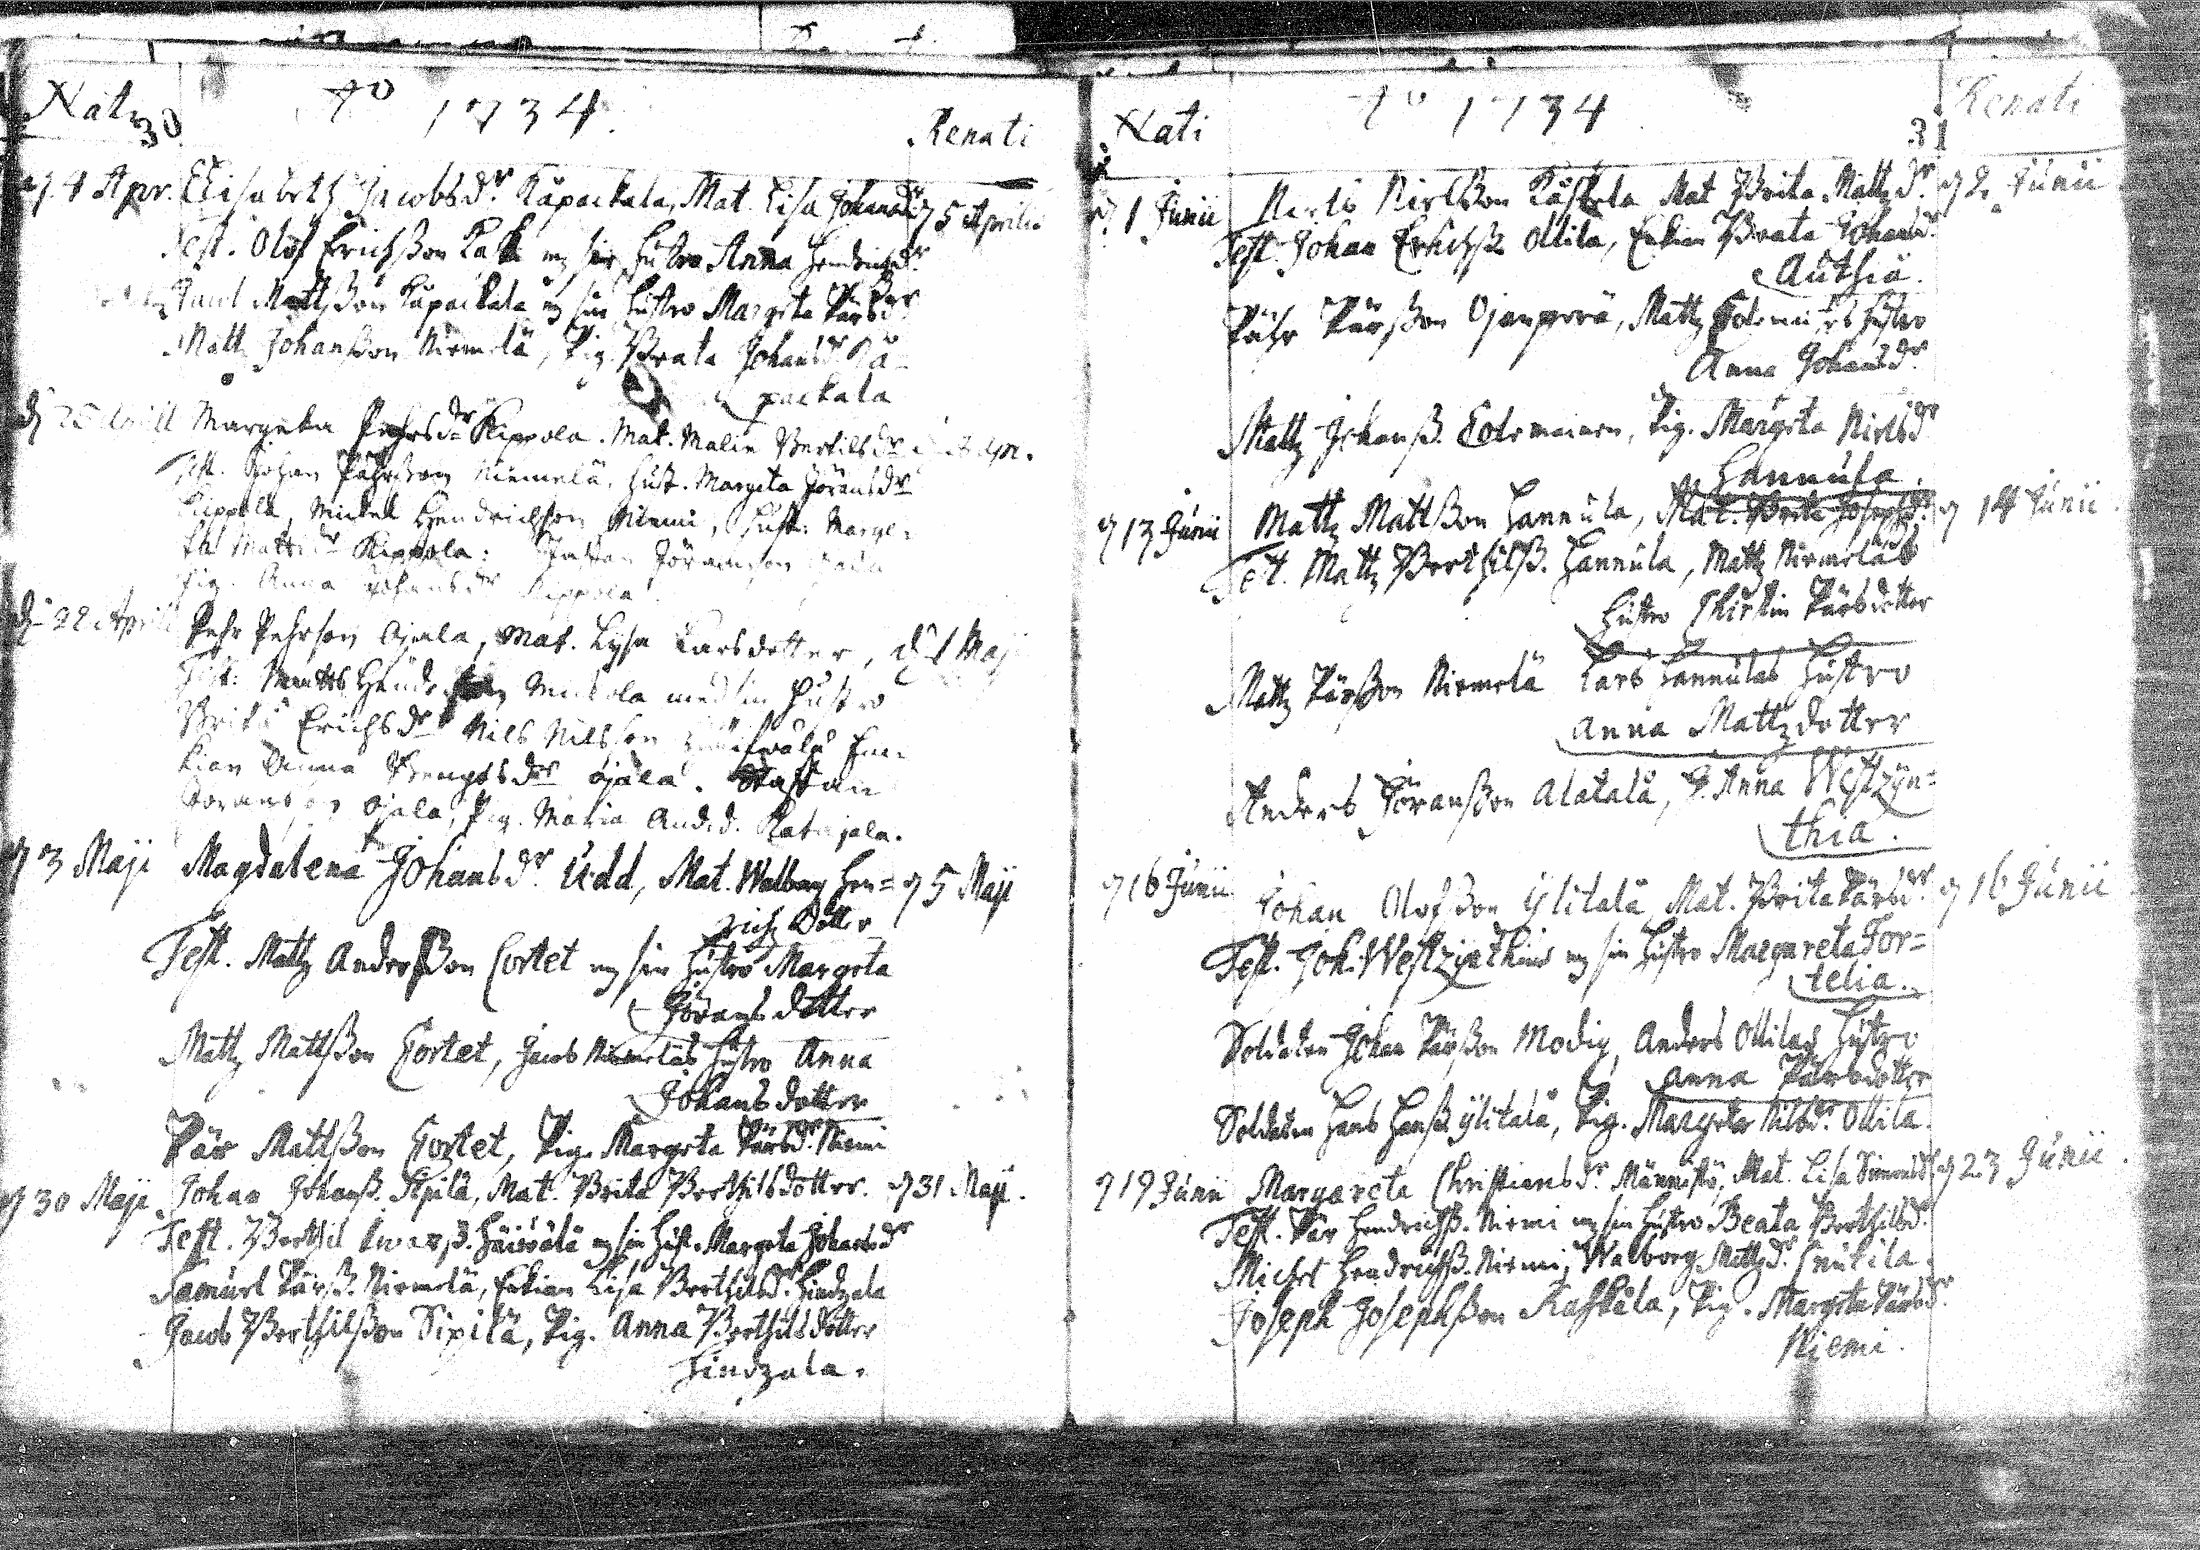 Nati 30 Ao 1734. Renati
4 Apr. Elisabeth Jacobsdr. Kåpackala, Mat. Lisa Johansdr 5 Aprilis
Test. Olof Erichsson Kack mz sin hustro Anna Hendrichsdr.
Jacob Mattsson Kåpackala mz sin hustro Margeta Pärsdr.
Mattz Johansson Niemelä, Pig. Beata Johansdr Kå-
packala
Margeta Pehrsdr Kippola. Mat. Malin Bertilsdr Apr.
Test. Johan Påhrsson Niemelä, hust. Margeta Jöransdr
Kippola, Mickel Hendrichsson Niemi, hust. Marge-
ta Mattsdr Kippola: Jöransson
Pig. Anna Johansdr Kippola.
d. 22 Aprill Pehr Pehrson Ojala, Mat. Lysa Larsdotter, d. 1 Maj
Test: Matts Mickola med sin hustro
Brita Erichsdr Nils Nilsson En-
kian Anna Bengtsdr Ojala. Staffan
Joransson Ojala, Pig. Maria And.d. Katajala.
3 Maji Magdalena Johansdr. Udd, Mat. Walborg Hen= 5 Maji
richz Dotter
Test. Mattz Andersson Cortet mz sin hustro Margeta
Göransdotter
Mattz Mattsson Cortet, Jacob Niemeläs hustro Anna
Johansdotter
Pär Mattsson Cortet, Pig. Margeta Pärsdr. Niemi
30 Maji. Johan Johanss. Sipilä, Mat. Brita Berthilsdotter. 31 Maji.
Test. Berthil Iwarss. Häiwälä mz sin hust. Margeta Johansdr
Samuel Pärss. Niemelä, Enkian Lisa Berthilsdr. Hindzala
Jacob Berthilsson Sipilä, Pig. Anna Berthilsdotter
Hindzala.
Nati Ao 1734 31 Renati
1 Junii Niels Nielsson Mat Brita Mattzdr. 2 Junii
Test. Johan Erichss. Ollila, Enkian Beata Johansdr
Authiä.
Påhr Pärsson Ojanperä, Mattz hustro
Anna Johansdr.
Mattz Johanss. Eolemainen, Pig. Margeta Nielsdr
Hannula.
13 Junii Mattz Mattsson Hannula, Mat. Brita Josephsdr. 14 Junii.
Test. Mattz Berthilss. Hannula, Mattz Niemeläs
hustro Chirstin Pärsdotter
Mattz Pärsson Niemelä Lars Hannulas hustro
Anna Mattzdotter
Anders Jöransson Alatalå, J. Anna Westzyn=
thia.
16 Junii Johan Olofsson Ylitalå Mat. Brita Pärsdr. 16 Junii
Test. Joh. Westzynthius mz sin hustro Margareta For=
telia.
Soldaten Johan Pärsson Modig, Anders Ollilas hustro
Anna Pärsdotter
Soldaten Hans Hanss. Ylitalå, Pig. Margeta Nilsdr. Ollila.
19 Junii Margareta Christiansdr. Männistö, Mat. Lisa Simonsdr 23 Junii.
Test. Pär Hendrichss. Niemi mz sin hustro Beata Berthilsdr.
Michel Hendrichss. Niemi, Walborg Mattzdr. Cnutila.
Joseph Josephsson Kaskela, Pig. Margeta Pärsdr.
Niemi.